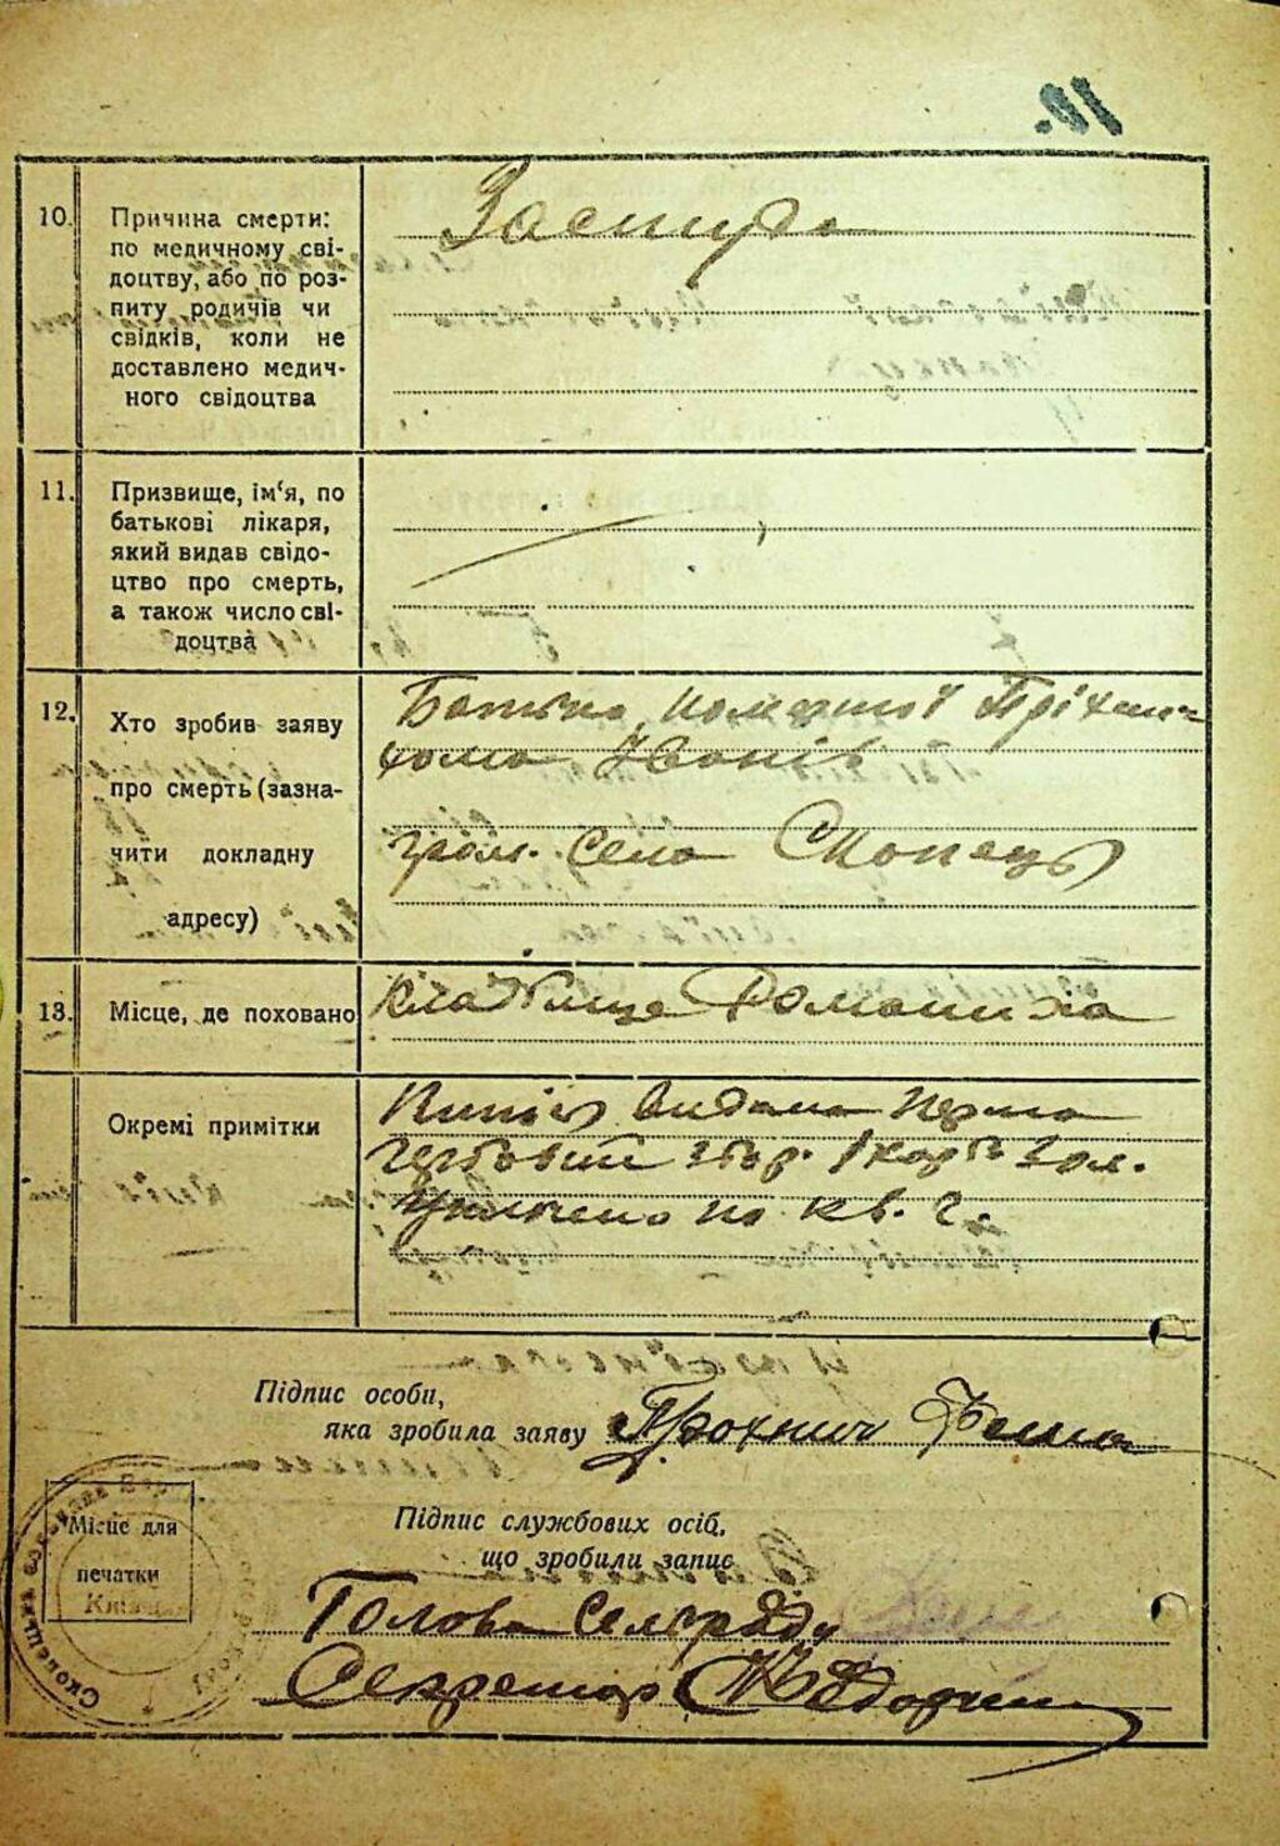 10.
Причина смерти:
по медичному сві-
доцтву, або по роз-
питу родичів чи
свідків, коли не
доставлено медич-
ного свідоцтва
Застуда
11.
Призвище, ім‘я, по
батькові лікаря,
який видав свідо-
цтво про смерть,
а також число сві-
доцтва
12.
Хто зробив заяву
про смерть (зазна-
чити докладну
адресу)
Батько, помершої
гром. села Скопець
13.
Місце, де поховано
Кладбище Романиха
Окремі примітки
видана
Гербовий збор. 1 карб 30 к.
Уплочено по кв. 2.
Підпис особи,
яка зробила заяву
Місце для
печатки
Підпис службових осіб,
що зробили запис
Голова Сельради
Секретар